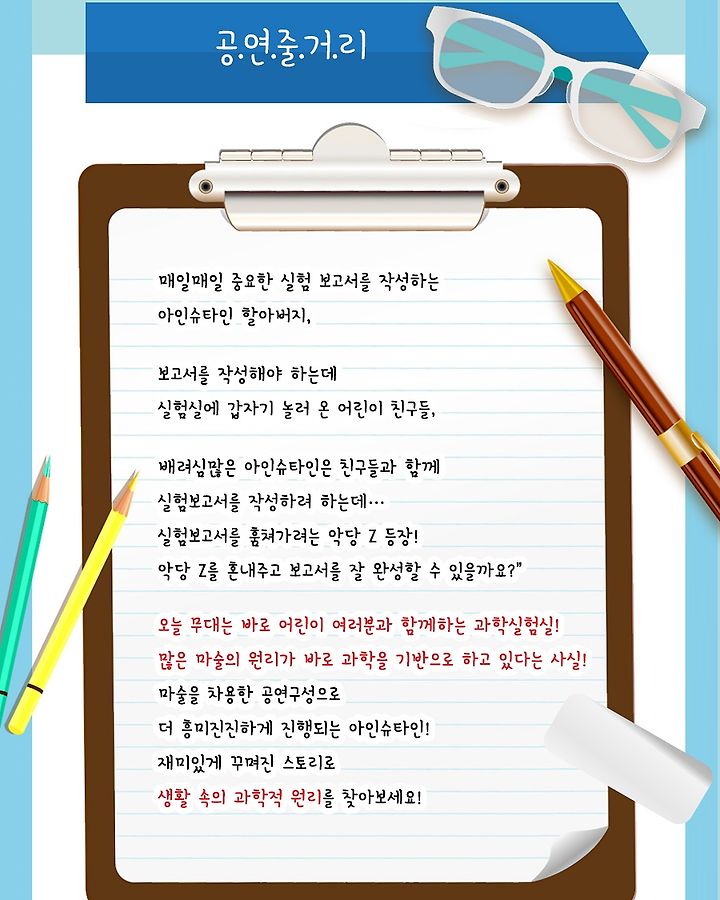 공.연.줄.거.리
매일매일 중요한 실험 보고서를 작성하는
아인슈타인 할아버지,
보고서를 작성해야 하는데
실험실에 갑자기 놀러 온 어린이 친구들,
배려심많은 아인슈타인은 친구들과 함께
실험보고서를 작성하려 하는데…
실험보고서를 훔쳐가려는 악당 Z 등장!
악당 Z를 혼내주고 보고서를 잘 완성할 수 있을까요?”
오늘 무대는 바로 어린이 여러분과 함께하는 과학실험실!
많은 마술의 원리가 바로 과학을 기반으로 하고 있다는 사실!
마술을 차용한 공연구성으로
더 흥미진진하게 진행되는 아인슈타인!
재미있게 꾸며진 스토리로
생활 속의 과학적 원리를 찾아보세요!